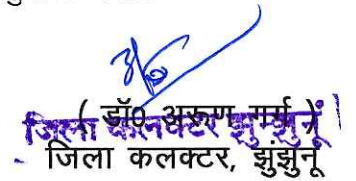 ( डॉ० अरूण गर्ग )
जिला कलक्टर झुन्झुनूं
जिला कलक्टर, झुंझुनूं